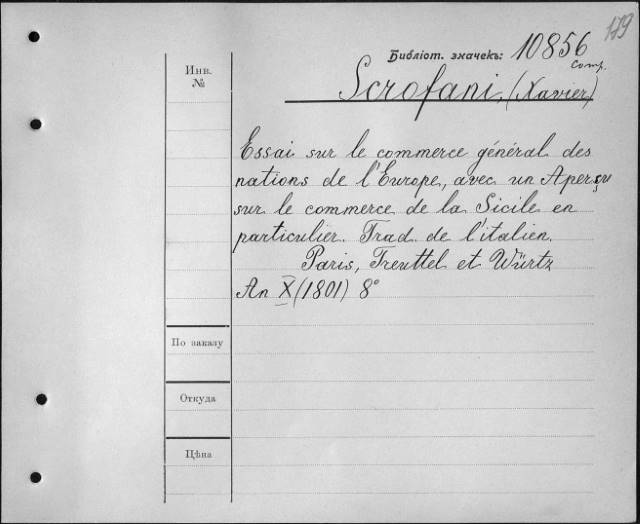 179
Библіот. значекъ: 10856
Comp.
Инв.
№
Scrofani, (Xavier)
Essai sur le commerce général des
nations de l'Europe, avec un Aperçu
sur le commerce de la Sicile en
particulier. Trad. de l'italien.
Paris, Treuttel et Würtz
An X (1801) 8°
По заказу
Откуда
Цѣна